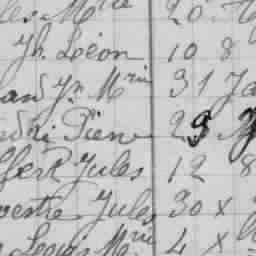 les Mrie 20
Jh. Léon 10 8
and Jn Mrin 31 Ja
ndré Pierre 29
lfert Jules 12 8
vestre Jules 30 x
Louis Mrie 4 x